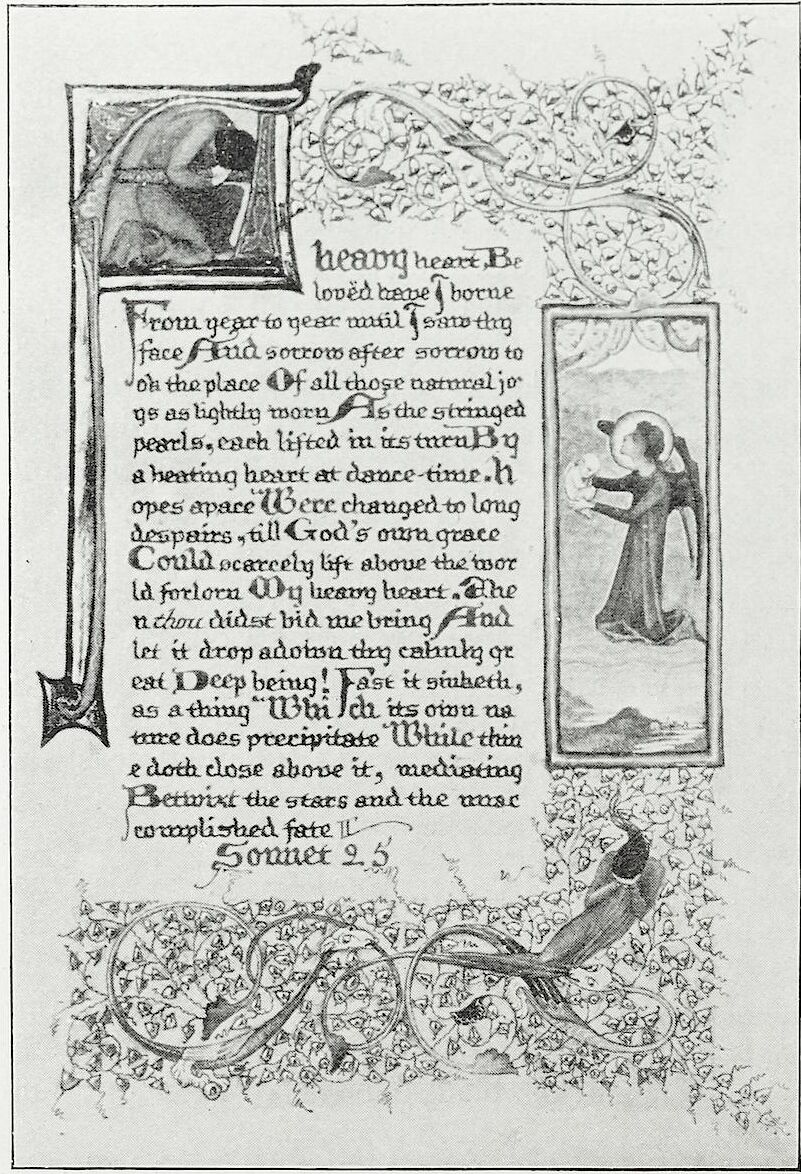 A heavy heart, Be
lovëd have I borne
From year to year until I saw thy
face And sorrow after sorrow to
ok the place Of all those natural jo
ys as lightly worn As the stringed
pearls, each lifted in its turn By
a beating heart at dance-time. H
opes apace Were changed to long
despairs, till God's own grace
Could scarcely lift above the wor
ld forlorn My heavy heart. The
n thou didst bid me bring And
let it drop adown thy calmly gr
eat Deep being! Fast it sinketh,
as a thing Which its own na
ture does precipitate While thin
e doth close above it, mediating
Betwixt the stars and the unac
complished fate
Sonnet 25